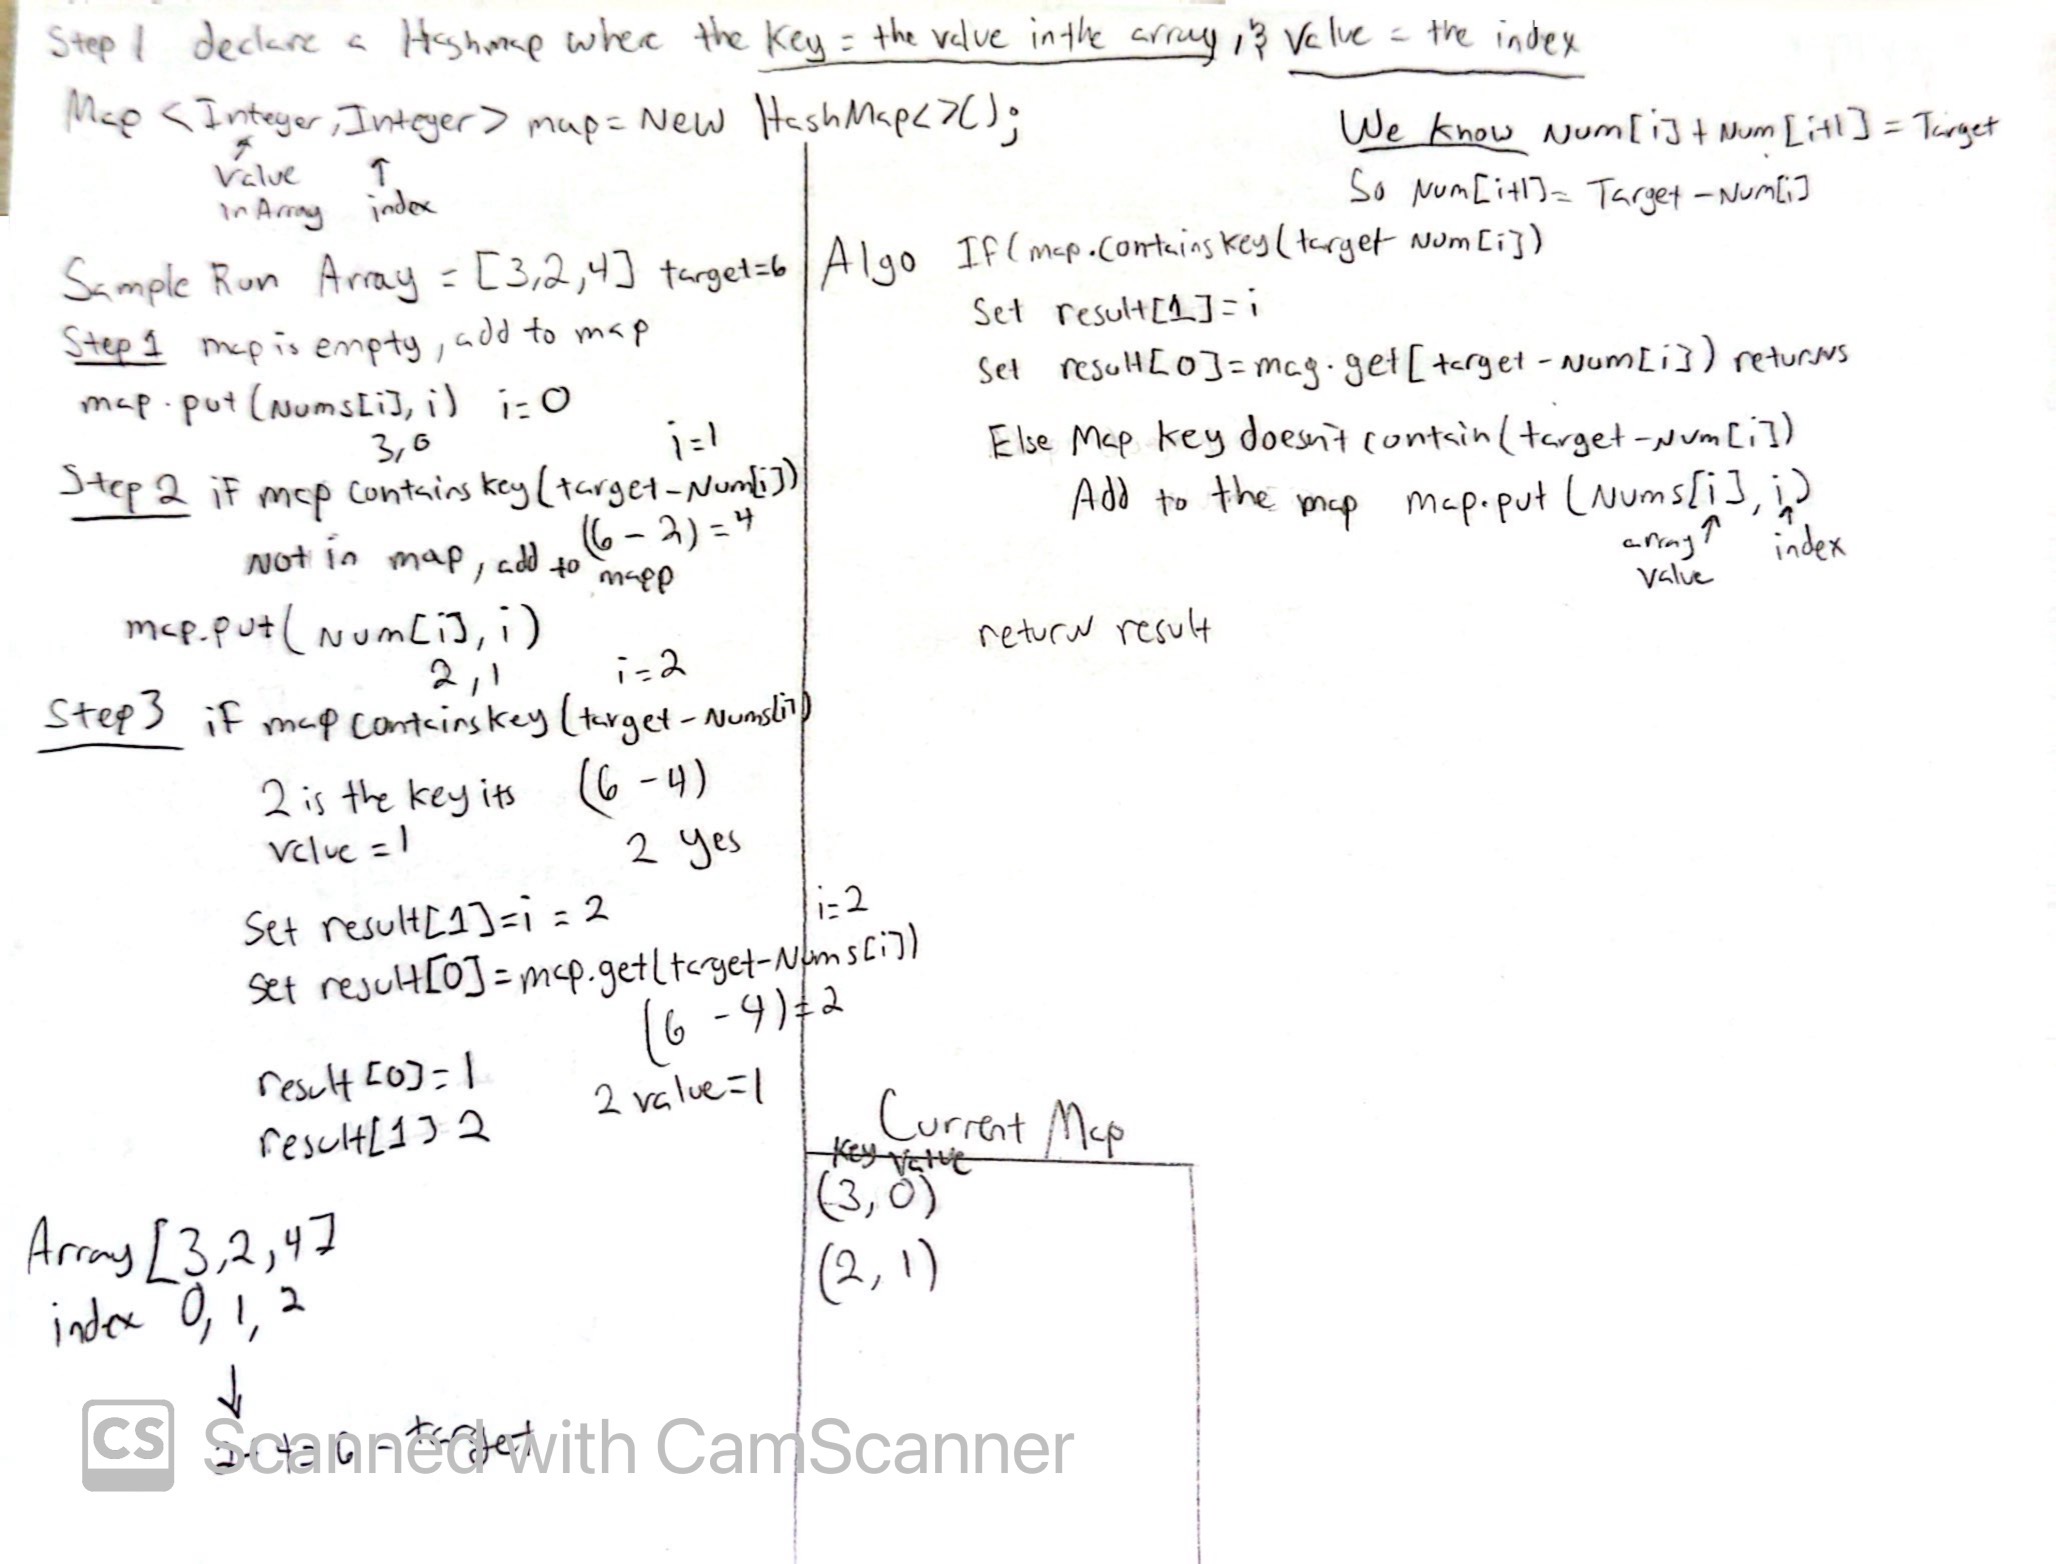 Step 1 declare a Hashmap where the Key = the value in the array, & Value = the index
Map <Integer, Integer> map = New HashMap<>();
Value in Array
index
We know Num[i] + Num[i+1] = Target
So Num[i+1] = Target - Num[i]
Sample Run Array = [3,2,4] target=6
Step 1 map is empty, add to map
map.put(Nums[i], i) i=0
3,0
i=1
Step 2 if map contains key(target-Num[i])
(6-2)=4
Not in map, add to mapp
map.put(Num[i], i)
2,1
i=2
Step 3 if map contains key(target-Nums[i])
2 is the key its (6-4)
value = 1
2 yes
Set result[1]=i = 2
i=2
Set result[0]=map.get(target-Nums[i])
(6-4)=2
result[0]=1
2 value=1
result[1] 2
Array [3,2,4]
index 0, 1, 2
= 6 - target
Algo If(map.contains key(target Num[i])
Set result[1]=i
Set result[0]=mag.get[target-Num[i]) returns
Else Map key doesn't contain(target-Num[i])
Add to the map map.put(Nums[i], i)
array value
index
return result
Current Map
Key Value
(3,0)
(2,1)
CS Scanned with CamScanner